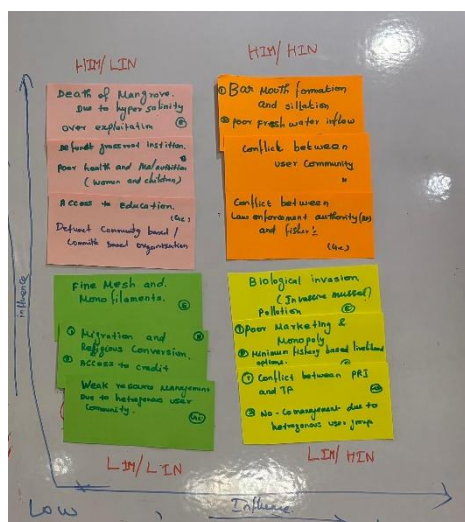 HIM/LIN
Death of Mangrove.
Due to hyper salinity
over exploitation
E
Defunct grassroot instition.
Poor health and Malnutrition
(Women and children)
Access to Education.
(Gc)
Defunct Community based/
Committe based organisation
HIM/HIN
① Bar Mouth formation
and siltation
② Poor Fresh water inflow
Conflict between
user Community
Conflict between
Law enforcement authority
and fisher's
(Gc)
Fine Mesh and
Monofilaments.
E
① Migration and
Religious Conversion.
② Access to credit
Weak resource Management
Due to hetrogenous user
Community.
(Gc)
LIM/LIN
Biological invasion
(Invasive mussel)
Pollution
E
① Poor Marketing &
Monopoly
② Minimum fishery based livelihood
options.
① Conflict between PRI
and TP
② No-Comanagement due to
hetrogenous user group
LIM/HIN
influence
Low
Influence